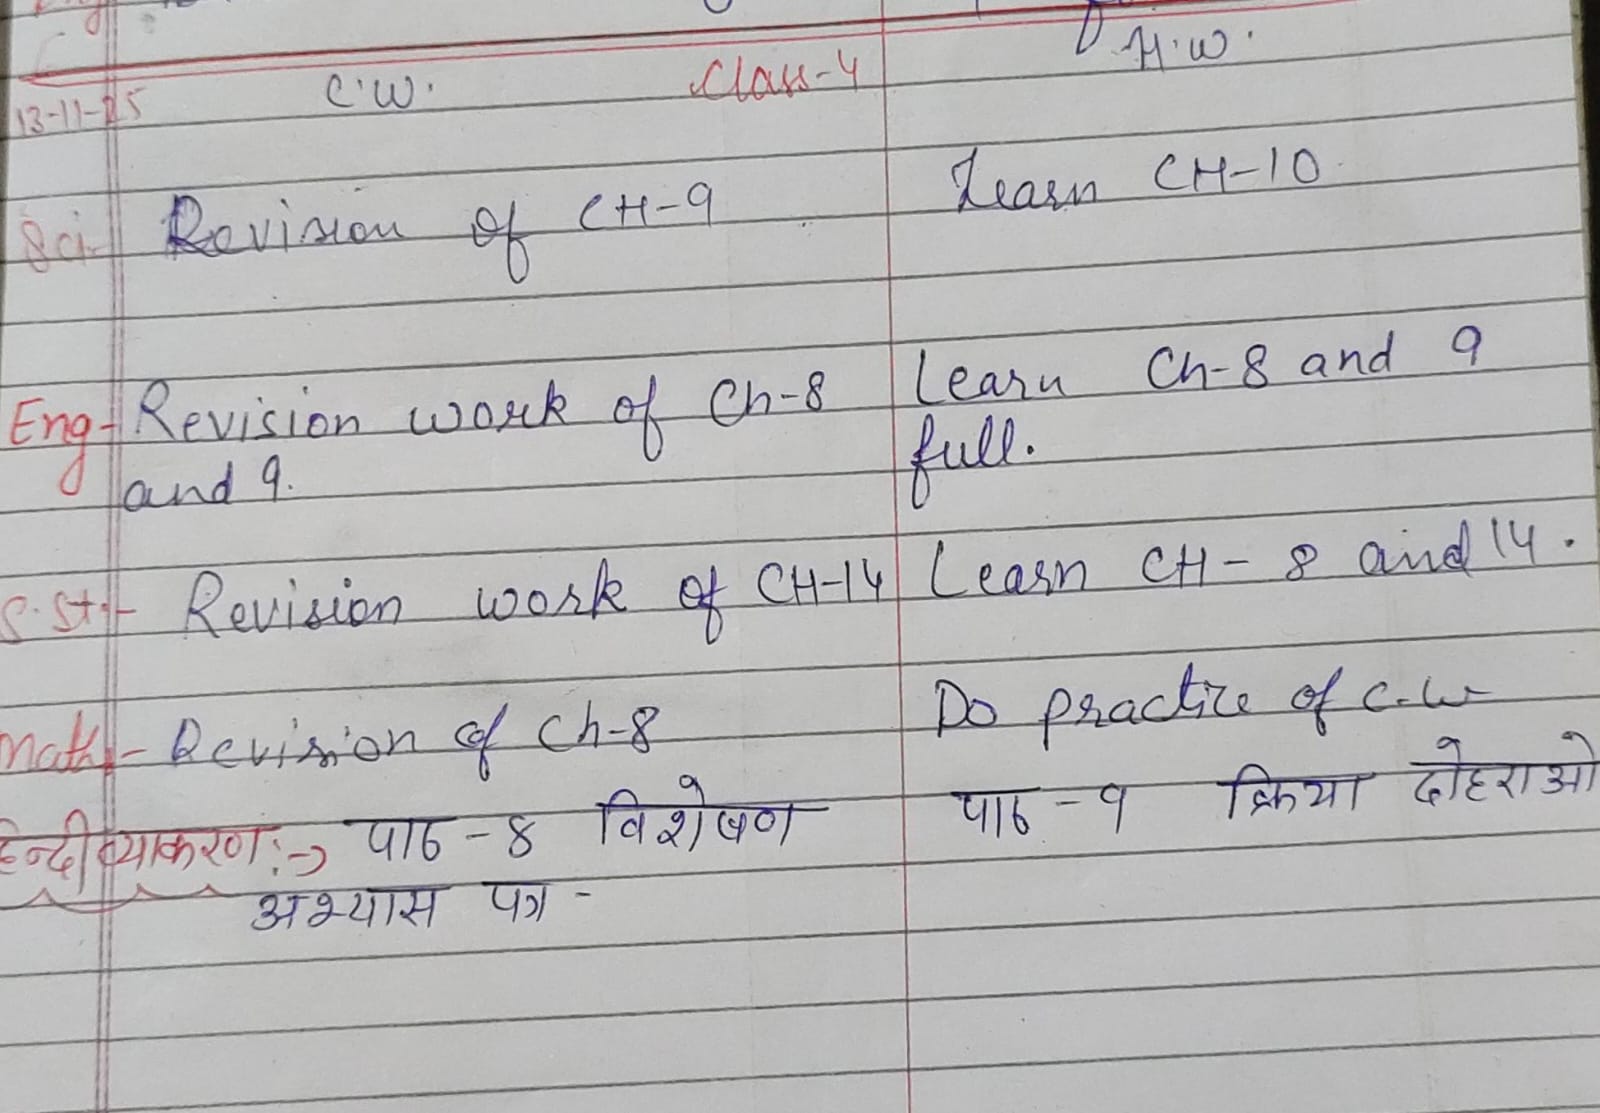 13-11-25 C.W. Class-4 H.W.
Sci- Revision of CH-9 Learn CH-10
Eng- Revision work of Ch-8 Learn Ch-8 and 9
and 9. full.
S.St:- Revision work of CH-14 Learn CH- 8 and 14.
Math - Revision of Ch-8 Do practice of C.W
हिन्दी व्याकरण:→ पाठ -8 विशेषण पाठ -9 क्रिया दोहराओ
अभ्यास पत्र -